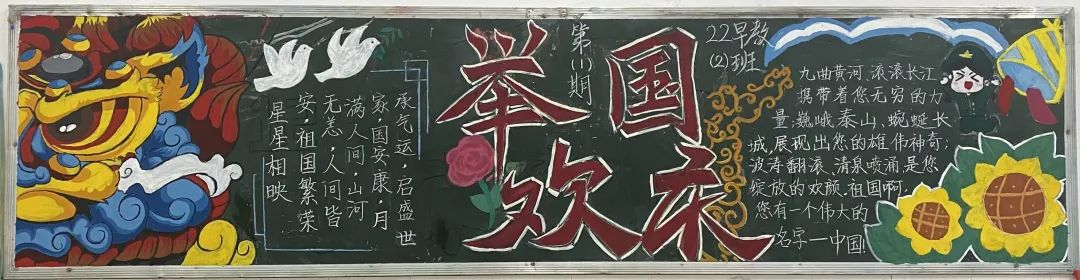 承气运,启盛世
家,国安康,月
满人间,山河
无恙,人间皆
安,祖国繁荣
星星相映
举国
欢庆
第(1)期
22早教
(2)班
九曲黄河,滚滚长江
携带着您无穷的力
量,巍峨泰山,蜿蜒长
城,展现出您的雄伟神奇;
波涛翻滚、清泉喷涌是您
绽放的欢颜.祖国啊,
您有一个伟大的
名字一中国!